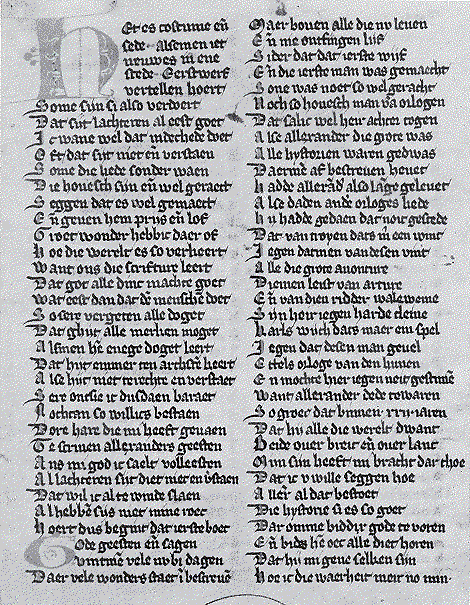 Het es costume eñ
sede Alsemen iet
nieuwes in ene
stede Eerstwerf
vertellen hoert
Some sijn si also verdoert
Dat sijt lachteren al eest goet
Ic wane wel dat indechede doet
Oft dat sijt niet eñ verstaen
Some die liede sonder waen
Die houesch sijn eñ wel geraect
Seggen dat es wel gemaect
Eñ geuen hem prijs eñ lof
Groet wonder hebbic daer of
Hoe die werelt es so verkeert
Want ons die scrifture leert
Dat got alle dinc machte goet
wat eest dan dat dē mensche doet
So sere vergeten alle doget
Dat ghijt alle merken moget
Alsmen hē enege doget leert
Dat hijt emmer ten archstē keert
Alse hijt niet te rechte en verstaet
Sere ontsie ic dusdaen baraet
Nochtan so willics bestaen
Dore hare die mi heeft geuaen
Te scriuen allexanders geesten
Ans mi god ic saelt volleesten
Al lachteren sijt diet niet en ūstaen
Dat wil ic al te winde slaen
Al hebbē sijs niet mine roec
Hoert dus begint dat ierste boec
Gode geesten eñ sagen
vintmē vele in bi dagen
Daer vele wonders staet ī bescreuē
Maer bouen alle die nv leuen
Eñ nie ontfingen lijf
Sider dat dat ierste wijf
Eñ die ierste man was gemaect
Sone was noet so wel geraect
Noch so houesch man vā orlogen
Dat salic wel hier achter togen
Alse allexander die grote was
Alle hystorien waren gedwas
Daermē af bescreuen heuet
Hadde allexād̄ also lāge geleuet
Alse daden ander orloges liede
Hi hadde gedaen dat noit gesciede
Dat van troyen dats mer een wint
Jegen datmen van desen vint
Alle die grote auonture
Diemen leest van arture
Eñ van dien ridder waleweine
Sijn hier iegen harde cleine
Karls wijch dats maer een spel
Jegen dat desen man geuel
Ettels orloge van den hunen
Eñ mochte hier iegen niet gestunē
Want allexander dede te waren
So groet dat binnen xrij iaren
Dat hi alle die werelt dwanc
Beide ouer breit eñ ouer lanc
Min sin heeft mi bracht dar thoe
Dat ic v wille seggen hoe
Allex̄ al dat bestoet
Die hystorie si es so goet
Dar omme biddic gode te voren
Eñ bids hē oec alle diet horen
Dat hi mi geue selken sin
Hoe ic die waerheit meir no min